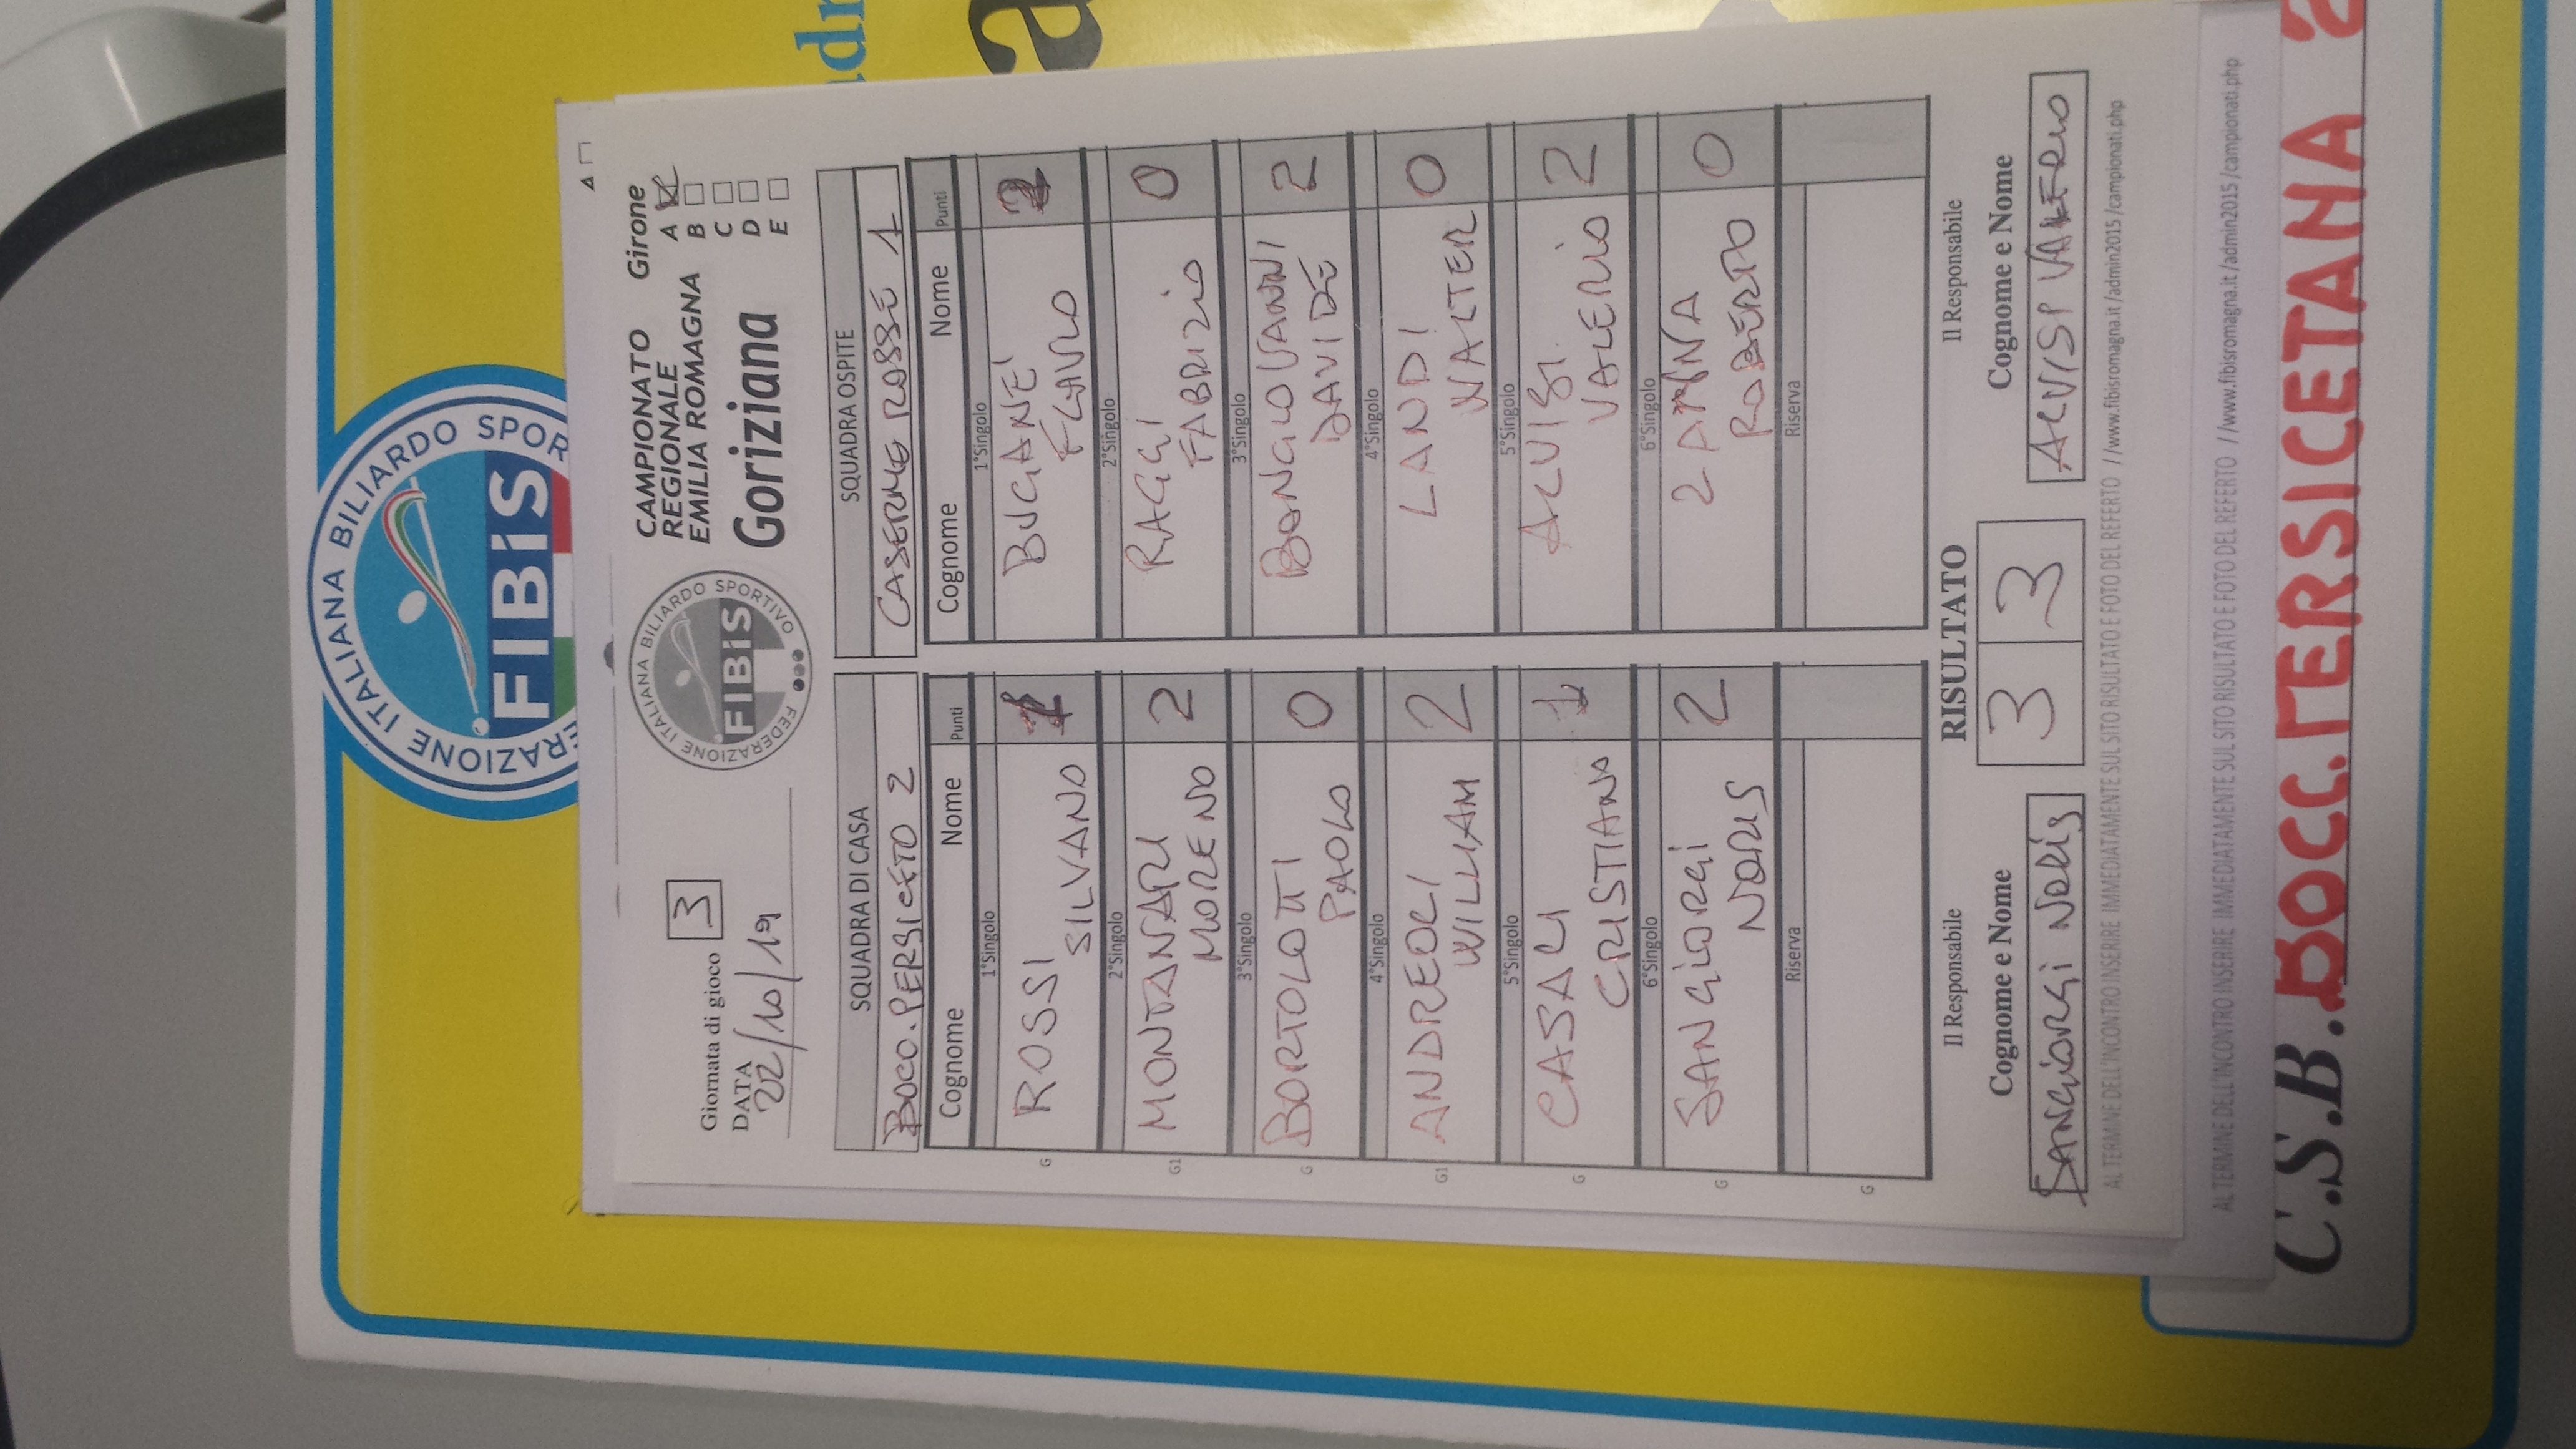 FEDERAZIONE ITALIANA BILIARDO SPOR
FIBiS
Giornata di gioco 3
DATA
22/10/19
FEDERAZIONE ITALIANA BILIARDO SPORTIVO
FIBiS
CAMPIONATO
REGIONALE
EMILIA ROMAGNA
Gorizìana
Girone
A
B
C
D
E
SQUADRA DI CASA
BOCC. PERSICETO 2
Cognome Nome Punti
1°Singolo
G ROSSI
SILVANO
2°Singolo
G1 MONTANARI 2
MORENO
3°Singolo
G BORTOLOTTI 0
PAOLO
4°Singolo
G1 ANDREOLI 2
WILLIAM
5°Singolo
G CASALI
CRISTIANO
6°Singolo
G SANGIORGI 2
NORIS
Riserva
G
SQUADRA OSPITE
CASERME ROSSE 1
Cognome Nome Punti
1°Singolo
BUGANE'
FLAVIO
2°Singolo
RAGGI 0
FABRIZIO
3°Singolo
BONGIOVANNI 2
DAVIDE
4°Singolo
LANDI 0
WALTER
5°Singolo
ALVISI 2
VALERIO
6°Singolo
ZANNA 0
ROBERTO
Riserva
Il Responsabile RISULTATO Il Responsabile
Cognome e Nome 3 3 Cognome e Nome
SANGIORGI NORIS ALVISI VALERIO
AL TERMINE DELL'INCONTRO INSERIRE IMMEDIATAMENTE SUL SITO RISULTATO E FOTO DEL REFERTO //www.fibisromagna.it/admin2015/campionati.php
AL TERMINE DELL'INCONTRO INSERIRE IMMEDIATAMENTE SUL SITO RISULTATO E FOTO DEL REFERTO //www.fibisromagna.it/admin2015/campionati.php
C.S.B. BOCC.PERSICETANA 2